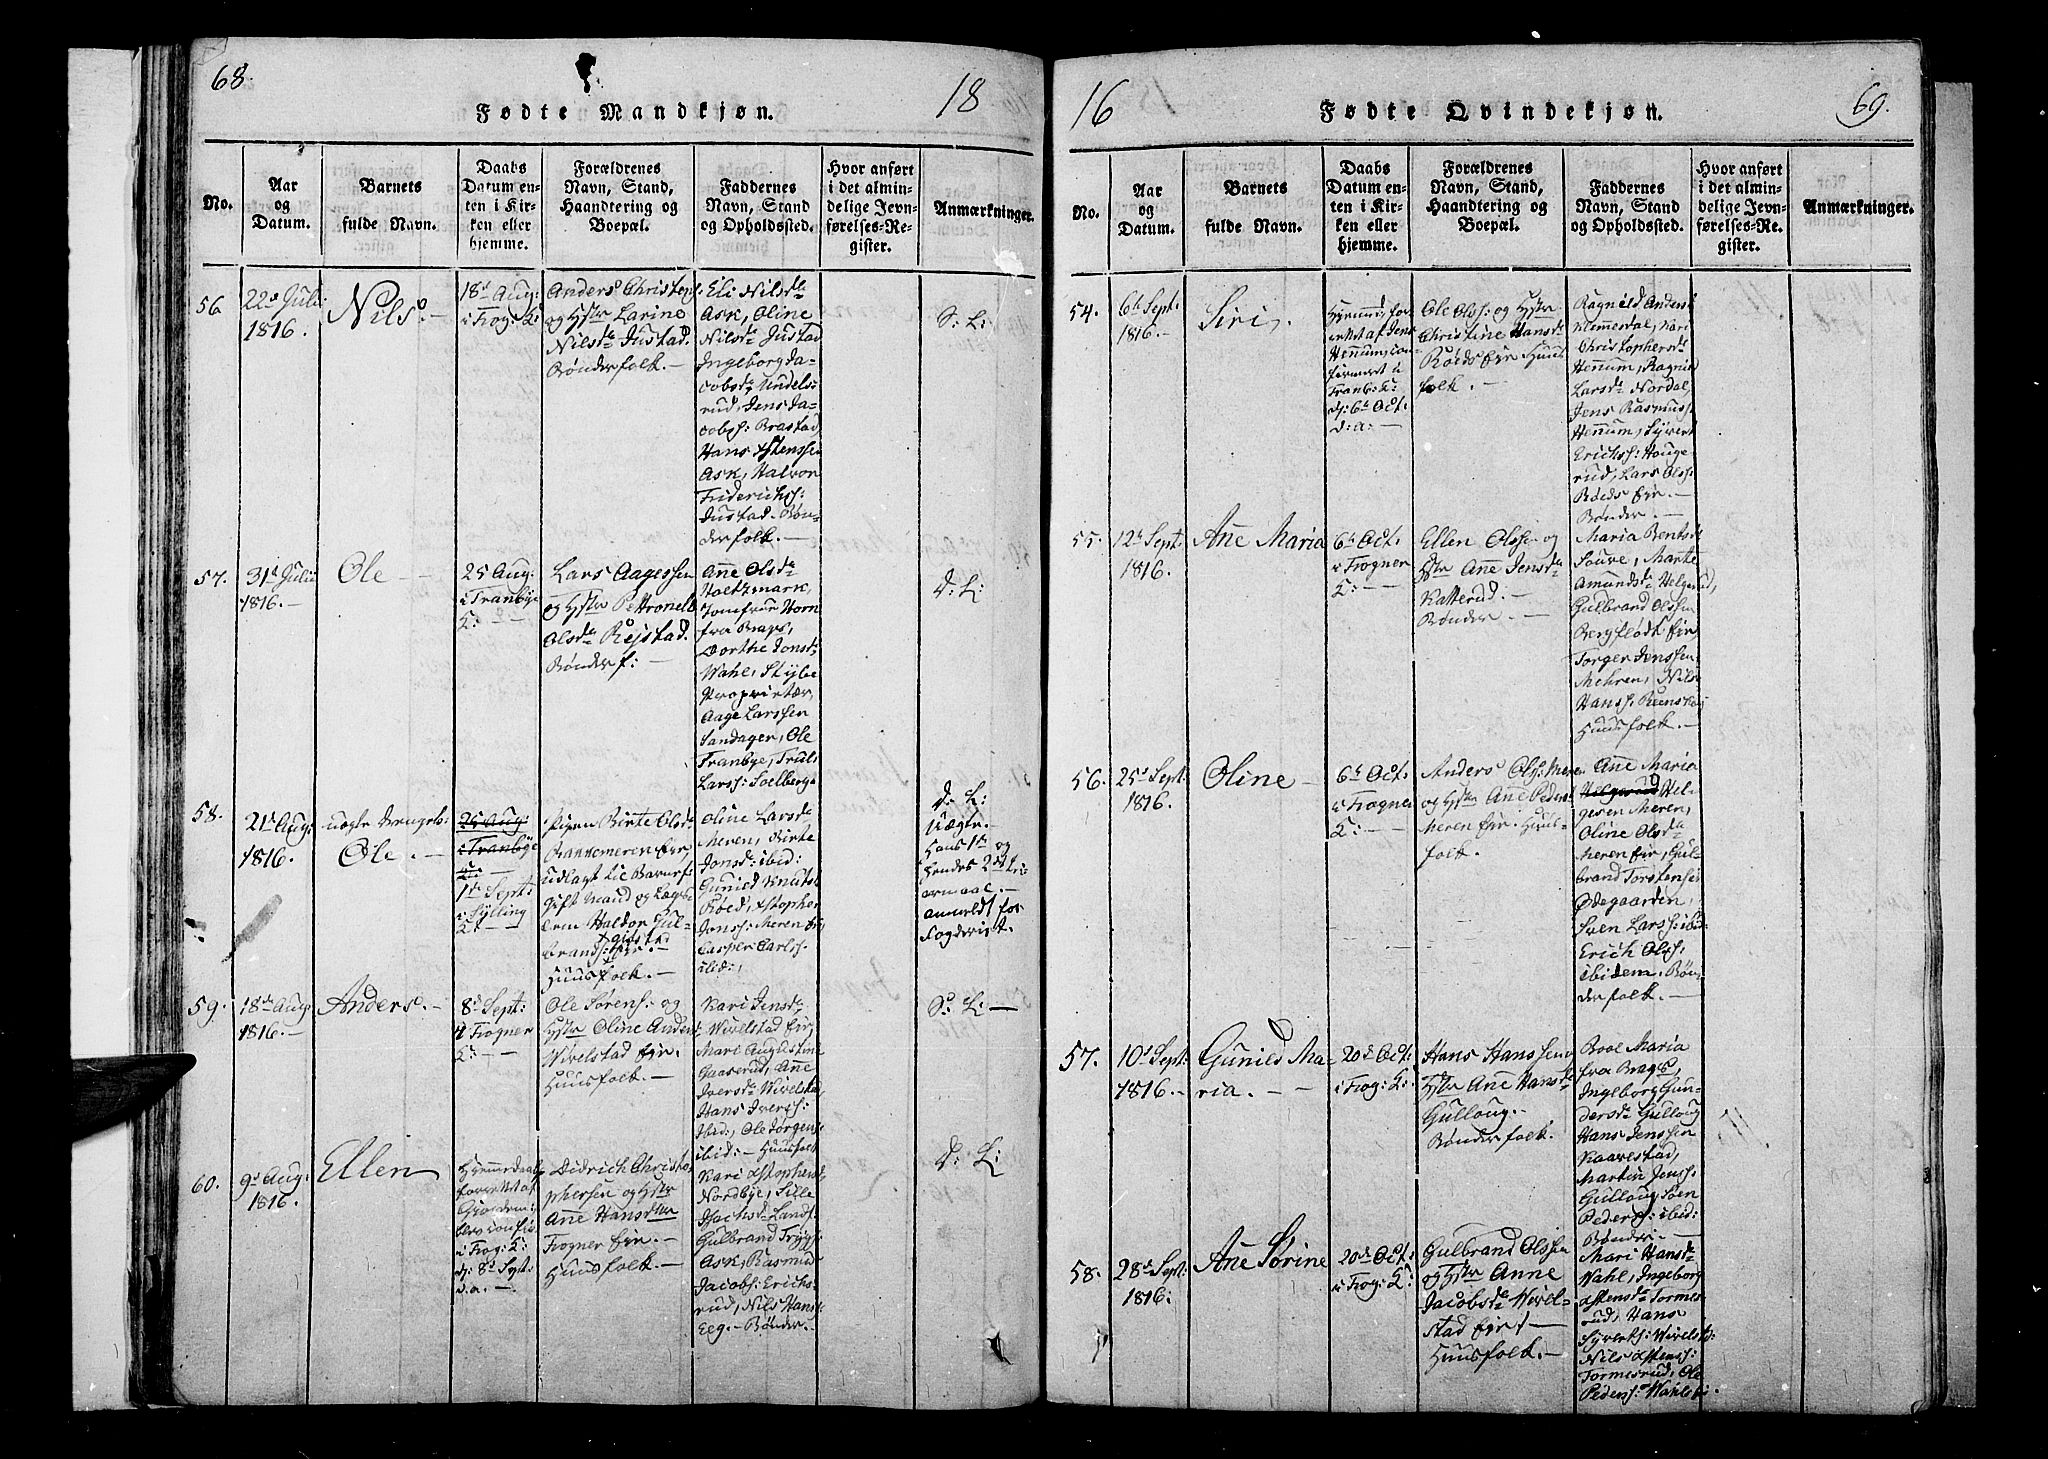 68.
18
Fødte Mandkjøn.
No.
Aar
og
Datum.
Barnets
fulde Navn.
Daabs
Datum en-
ten i Kir-
ken eller
hjemme.
Forældrenes
Navn, Stand,
Haandtering og
Boepæl.
Faddernes
Navn, Stand
og Opholdssted.
Hvor anført
i det almin-
delige Jevn-
førelses-Re-
gister.
Anmærkninger.
56
22de Juli
1816.
Nils. —
18de Aug:
i Frog: K:
Anders Christens:
og Hstr Larine
Nilsda Justad.
Bønderfolk. —
Eli Nilsda
Ask, Oline
Nilsda Justad
Ingeborg Ja-
cobsda Undels-
rud, Jens Ja-
cobss: Brastad,
Hans Xstenssen
Ask, Halvor
Friderichs:
Justad. Bøn-
derfolk. —
S: L:
57.
31te Julii
1816. —
Ole —
25 Aug:
i Tranbye
K: —
Lars Aagessen
og Hstr Pettronell
Olsda Rejstad.
Bønderf: —
Anne Olsda
Holtzmark,
Jomfrue Horn
fra Brags,
Dorthe Jonsd:
Wahl, Stybe
Proprietær,
Aage Larssen
Sandager, Ole
Tranbye, Truls
Larss: Solberg
D: L:
58.
21de Aug:
1816.
uægte
Ole. —
25 Aug:
i Tranbye
K: —
1te Sept:
i Sylling
K: —
Pigen Birte Olsda
udlagt til Barnef:
gift Mand og
Haldor Gul-
brands:
Huusfolk. —
Oline Larsda
Meren, Birte
Jonsda ibid:
Gunild Knuts
Røed, Xstopher
Jonss: Meren
Casper Carlss:
ibid:
D: L:
Uægte.
Hans 1te og
hendes 2det
—
anmeldt for
Fogderiet.
59.
18de Aug:
1816. —
Anders. —
8de Sept:
i Frogner
K: —
Ole Sørens: og
Hstr Oline Anders
Wivelstad Eir.
Huusfolk. —
Kari Jensda
Wivelstad Eir,
Mari Augustine
Gaaserud, Ane
Iversda Wivelstad,
Hans Iverss:
ibid:, Ole Jørgens
ibid: — Huusfolk
S: L: —
60.
9de Aug:
1816.
Ellen
Hjemmedaab
forrettet af
i Frog: K:
d: 8de Sept:
d. a. —
Didrich Christo-
phersen og Hstr
Ane Hansdtter
Frogner Eir. —
Huusfolk. —
Kari Xstophersd
Nordbye, Sille
Gulbrand Trygs:
Ask, Rasmus
Jacobs: Erichs-
rud, Nils Hans
Eeg. — Bønder. —
D: L:
16
69.
Fødte Qvindekjøn.
No.
Aar
og
Datum.
Barnets
fulde Navn.
Daabs
Datum en-
ten i Kir-
ken eller
hjemme.
Forældrenes
Navn, Stand,
Haandtering og
Boepæl.
Faddernes
Navn, Stand
og Opholdssted.
Hvor anført
i det almin-
delige Jevn-
førelses-Re-
gister.
Anmærkninger.
54.
6te Sept:
1816.
Siri,
Hjemmed. for-
rettet af Jens
Hennum, con-
firmeret i
Tranb: K:
d: 6te Oct:
d: a: —
Ole Olss: og Hstr
Christine Hansda
Røeds Eir Huus-
folk. —
Ragnild Anders
Klemesdal, Kari
Christophersda
Hennum, Ragnil
Larsda Nordal,
Jens Rasmuss:
Hennum, Syvert
Erichss: Houge-
rud, Lars Olss:
Røeds Eir. —
Bønder. —
55.
12te Sept:
1816.
Ane Maria
6te Oct:
i Frogner
K: —
Ellen Olssen og
Hstr Ane Jensda
Katterud: —
Bønder. —
Maria Bentsd
Touve, Marte
Amundsda Helgerud,
Gulbrand Olssen
Bergflødt Eir
Torger Jenssen
Mehren, Nils
Hanss: Reenskoug
Huusfolk. —
56.
25de Sept:
1816.
Oline —
6te Oct:
i Frogner
K: —
Anders Olss: Meren
og Hstr Ane Peders
Meren Eir. Huus-
folk.
Ane Maria
Helgerud Hel-
gesen Meren,
Oline Olsda
Meren Eir, Gul-
brand Torstensen
Ødegaarden,
Sven Larss: ibid:
Erich Olss.
ibidem. Bøn-
derfolk. —
57.
10de Sept:
1816. —
Gunild Ma-
ria. —
20de Oct:
i Frog: K:
Hans Hanssen og
Hstr Ane Hansda
Gulloug. —
Bønderfolk.
Boel Maria
fra Brags,
Ingleborg Gun-
dersda Gulloug
Hans Jenssen
Kaarestad,
Martin Jonss:
Gulloug, Søen
Peders: ibid:
Bønder. —
58.
28de Sept:
1816:
Ane Sørine
20de Oct:
i Frog: K:
Gulbrand Olssen
og Hstr Anne
Jacobsda Wivel-
stad Eir. —
Huusfolk. —
Mari Hansda
Wahl, Ingeborg
Xstensda Tormes-
rud, Hans
Syverts: Wivelst:
Nils Xstenss:
Tormesrud, Ole
Peders: